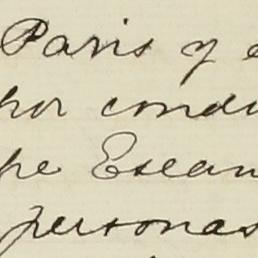 Paris y e
por condu
pe Escan
personas